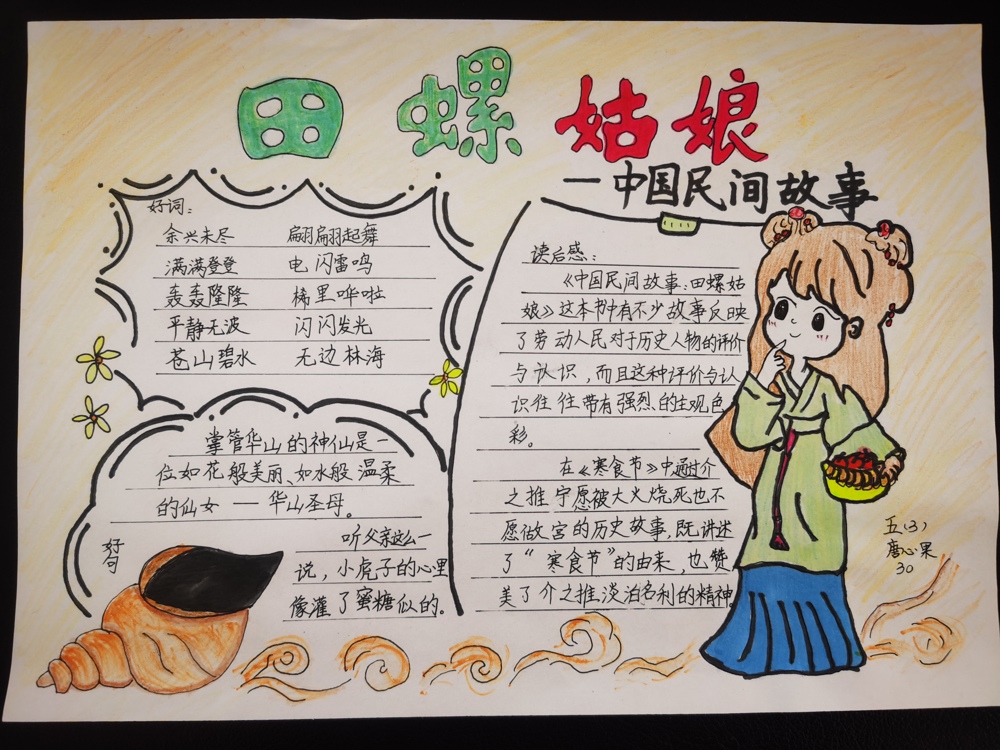 田螺姑娘
—中国民间故事
好词:
余兴未尽 翩翩起舞
满满登登 电闪雷鸣
轰轰隆隆 稀里哗啦
平静无波 闪闪发光
苍山碧水 无边林海
掌管华山的神仙是一
位如花般美丽、如水般温柔
的仙女——华山圣母。
好句
听父亲这么一
说,小虎子的心里
像灌了蜜糖似的。
读后感:
《中国民间故事:田螺姑
娘》这本书中有不少故事反映
了劳动人民对于历史人物的评价
与认识,而且这种评价与认
识往往带有强烈的主观色
彩。
在《寒食节》中通过介
之推宁愿被大火烧死也不
愿做官的历史故事,既讲述
了“寒食节”的由来,也赞
美了介之推淡泊名利的精神。
五(3)
唐心果
30